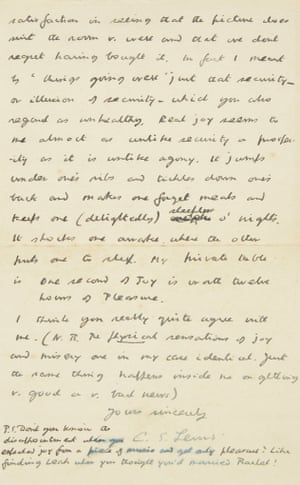 satisfaction in seeing that the picture does
suit the room v. well and that we dont
regret having bought it. In fact I meant
by "things going well" just that security –
or illusion of security – which you also
regard as unhealthy. Real joy seems to
me almost as unlike security or prosper-
ity as it is unlike agony. It jumps
under one's ribs and tickles down one's
back and makes one forget meals and
keeps one (delightedly) sleepless o' nights.
It shocks one awake where the other
puts one to sleep. My private table
is one second of Joy is worth twelve
hours of Pleasure.
I think you really quite agree with
me. (N.B. The physical sensations of joy
and misery are in my case identical. Just
the same thing happens inside me on getting
v. good or v. bad news)
Yours sincerely
C. S. Lewis
P.S. Don't you know the
disappointment when you
expected joy from a piece of music and get only pleasure? Like
finding Leah when you thought you'd married Rachel!